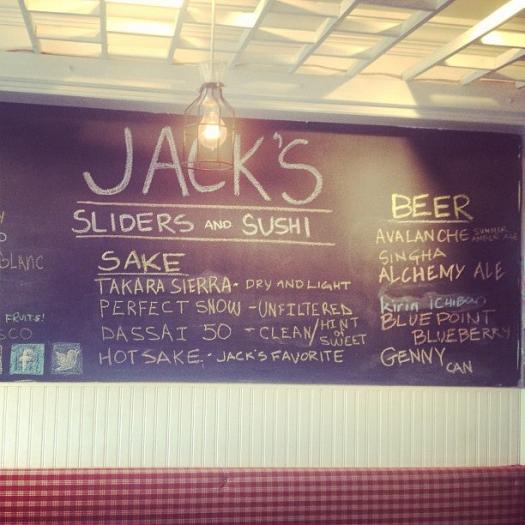 JACK'S
SLIDERS AND SUSHI
SAKE
TAKARA SIERRA - DRY AND LIGHT
PERFECT SNOW - UNFILTERED
DASSAI 50 - CLEAN/HINT OF SWEET
HOT SAKE - JACK'S FAVORITE
BEER
AVALANCHE SUMMER AMBER ALE
SINGHA
ALCHEMY ALE
kirin ICHIBAN
BLUE POINT
BLUEBERRY
GENNY CAN
BLANC
FRUITS!
SCO
f